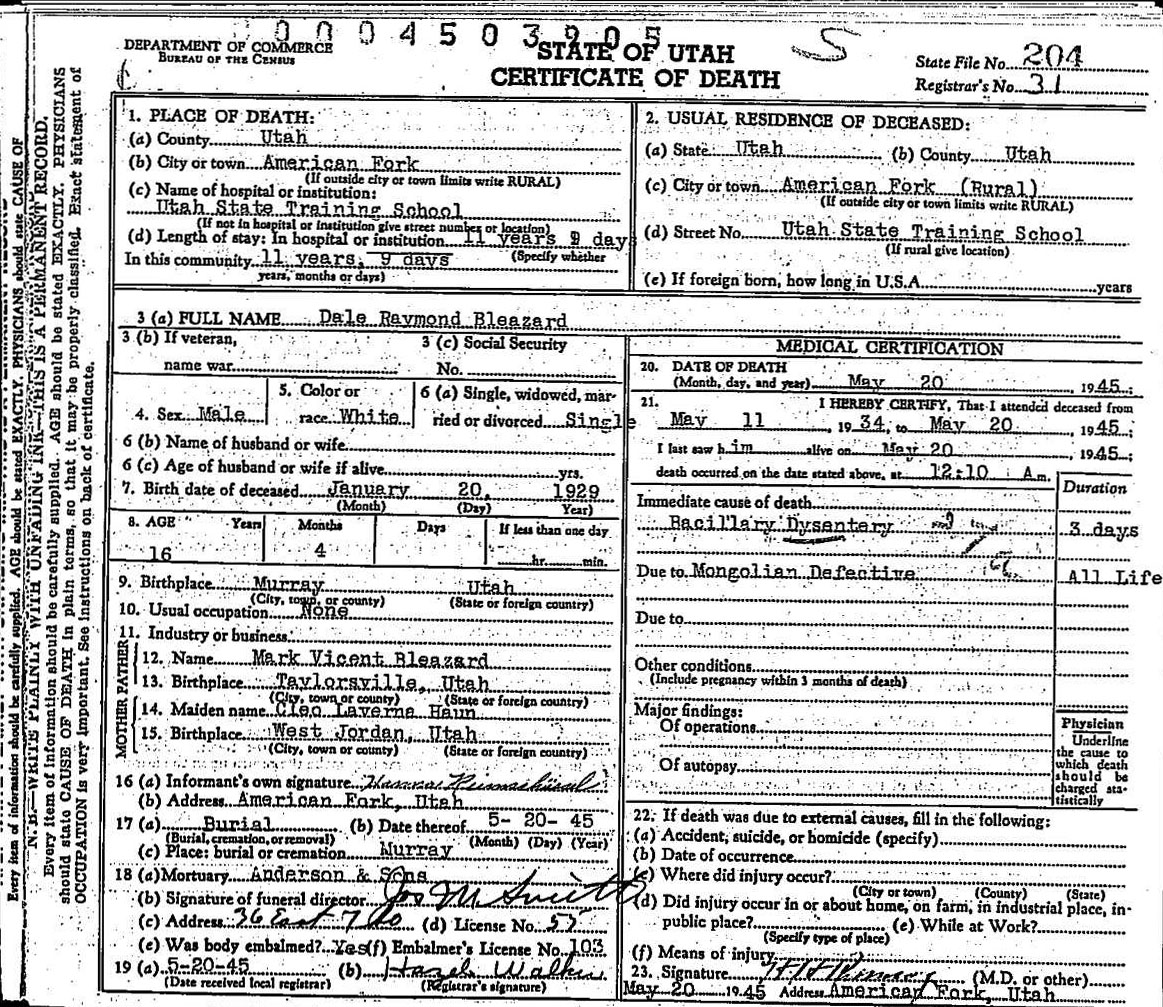 0004503905
S
DEPARTMENT OF COMMERCE
BUREAU OF THE CENSUS
STATE OF UTAH
CERTIFICATE OF DEATH
State File No. 204
Registrar's No. 31
Every item of information should be carefully supplied. AGE should be stated EXACTLY. PHYSICIANS should state CAUSE OF
N. B.—WRITE PLAINLY WITH UNFADING INK—THIS IS A PERMANENT RECORD.
Every item of information should be carefully supplied. AGE should be stated EXACTLY. PHYSICIANS
should state CAUSE OF DEATH in plain terms, so that it may be properly classified. Exact statement of
OCCUPATION is very important. See instructions on back of certificate.
1. PLACE OF DEATH:
(a) County Utah
(b) City or town American Fork
(If outside city or town limits write RURAL)
(c) Name of hospital or institution:
Utah State Training School
(If not in hospital or institution give street number or location)
(d) Length of stay: In hospital or institution 11 years 9 days
(Specify whether
In this community 11 years, 9 days
years, months or days)
2. USUAL RESIDENCE OF DECEASED:
(a) State Utah (b) County Utah
(c) City or town American Fork (Rural)
(If outside city or town limits write RURAL)
(d) Street No. Utah State Training School
(If rural give location)
(e) If foreign born, how long in U.S.A. years
3 (a) FULL NAME Dale Raymond Bleazard
3 (b) If veteran,
name war
3 (c) Social Security
No.
4. Sex Male
5. Color or
race White
6 (a) Single, widowed, mar-
ried or divorced Single
6 (b) Name of husband or wife
6 (c) Age of husband or wife if alive yrs.
7. Birth date of deceased January 20, 1929
(Month) (Day) Year)
8. AGE Years Months Days If less than one day
16 4 hr. min.
9. Birthplace Murray Utah
(City, town, or county) (State or foreign country)
10. Usual occupation None
11. Industry or business
FATHER
12. Name Mark Vicent Bleazard
13. Birthplace Taylorsville, Utah
(City, town or county) (State or foreign country)
MOTHER
14. Maiden name Cleo Laverna Haun
15. Birthplace West Jordan, Utah
(City, town or county) (State or foreign country)
16 (a) Informant's own signature
(b) Address American Fork, Utah
17 (a) Burial (b) Date thereof 5-20-45
(Burial, cremation, or removal) (Month) (Day) (Year)
(c) Place: burial or cremation Murray
18 (a) Mortuary Anderson & Sons
(b) Signature of funeral director Jos M Smith
(c) Address 36 East 7 So (d) License No. 55
(e) Was body embalmed? Yes (f) Embalmer's License No. 103
19 (a) 5-20-45 (b) Hazel Walker
(Date received local registrar) (Registrar's signature)
MEDICAL CERTIFICATION
20. DATE OF DEATH
(Month, day, and year) May 20 1945;
21. I HEREBY CERTIFY, That I attended deceased from
May 11, 1934, to May 20, 1945;
I last saw him alive on May 20, 1945;
death occurred on the date stated above, at 12:10 A m.
Duration
Immediate cause of death
Bacillary Dysentery 3 days
Due to Mongolian Defective All Life
Due to
Other conditions
(Include pregnancy within 3 months of death)
Major findings:
Of operations
Of autopsy
Physician
Underline
the cause to
which death
should be
charged sta-
tistically
22. If death was due to external causes, fill in the following:
(a) Accident, suicide, or homicide (specify)
(b) Date of occurrence
(c) Where did injury occur?
(City or town) (County) (State)
(d) Did injury occur in or about home, on farm, in industrial place, in-
public place? (e) While at Work?
(Specify type of place)
(f) Means of injury
23. Signature (M.D. or other)
May 20 1945 Address American Fork, Utah